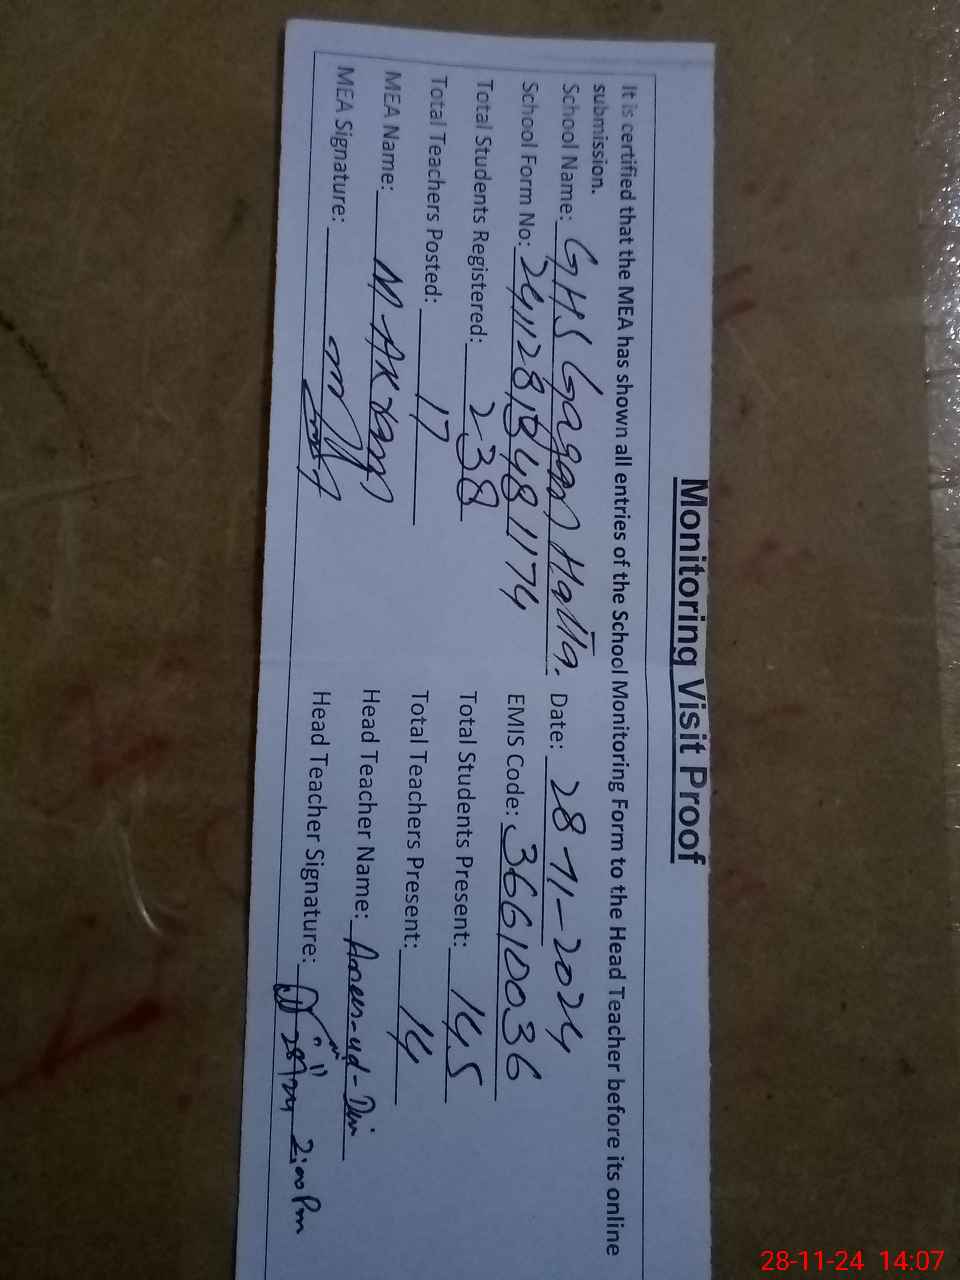 Monitoring Visit Proof
It is certified that the MEA has shown all entries of the School Monitoring Form to the Head Teacher before its online
submission.
School Name: GHS Gagan Hatta. Date: 28-11-2024
School Form No: 24112810481174 EMIS Code: 36610036
Total Students Registered: 238 Total Students Present: 145
Total Teachers Posted: 17 Total Teachers Present: 14
MEA Name: M Akram Head Teacher Name: Anees-ud-Din
MEA Signature: Head Teacher Signature:
2:00 Pm
28-11-24 14:07